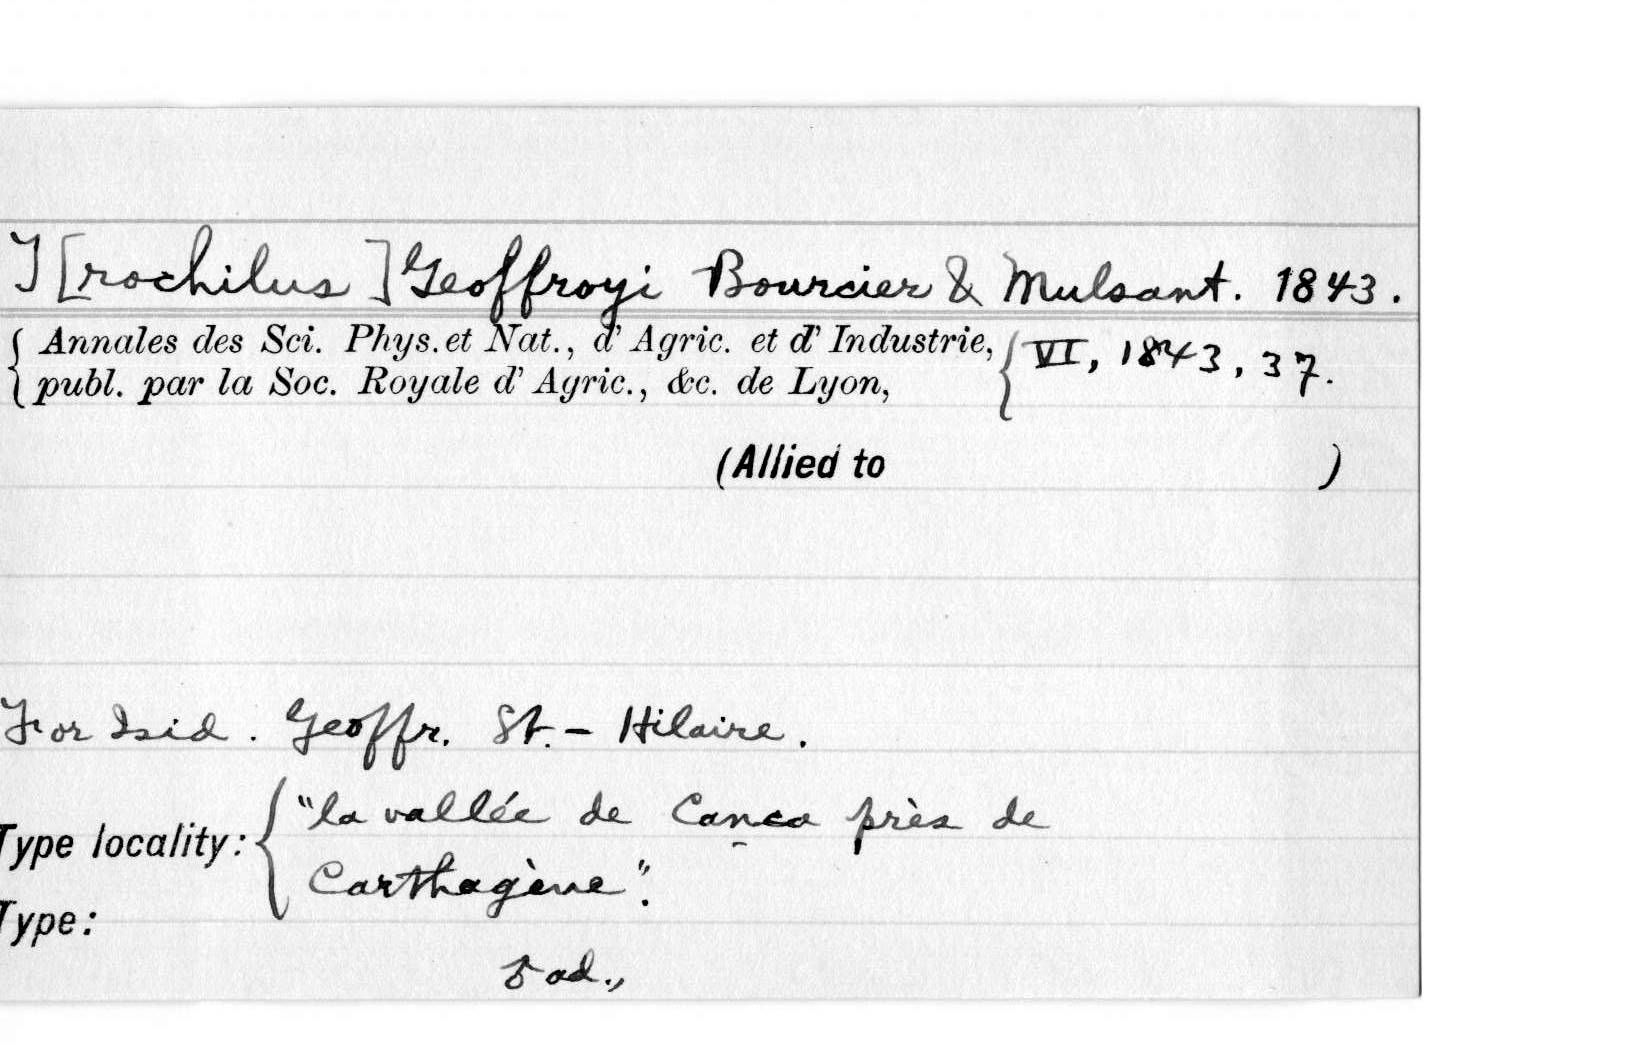 T[rochilus] Geoffroyi Bourcier & Mulsant. 1843.
{ Annales des Sci. Phys. et Nat., d' Agric. et d' Industrie, { VI, 1843, 37.
publ. par la Soc. Royale d' Agric., &c. de Lyon,
(Allied to )
For Isid. Geoffr. St.- Hilaire.
Type locality: { "la vallée de Canca près de
Carthagène".
Type:
ad.,